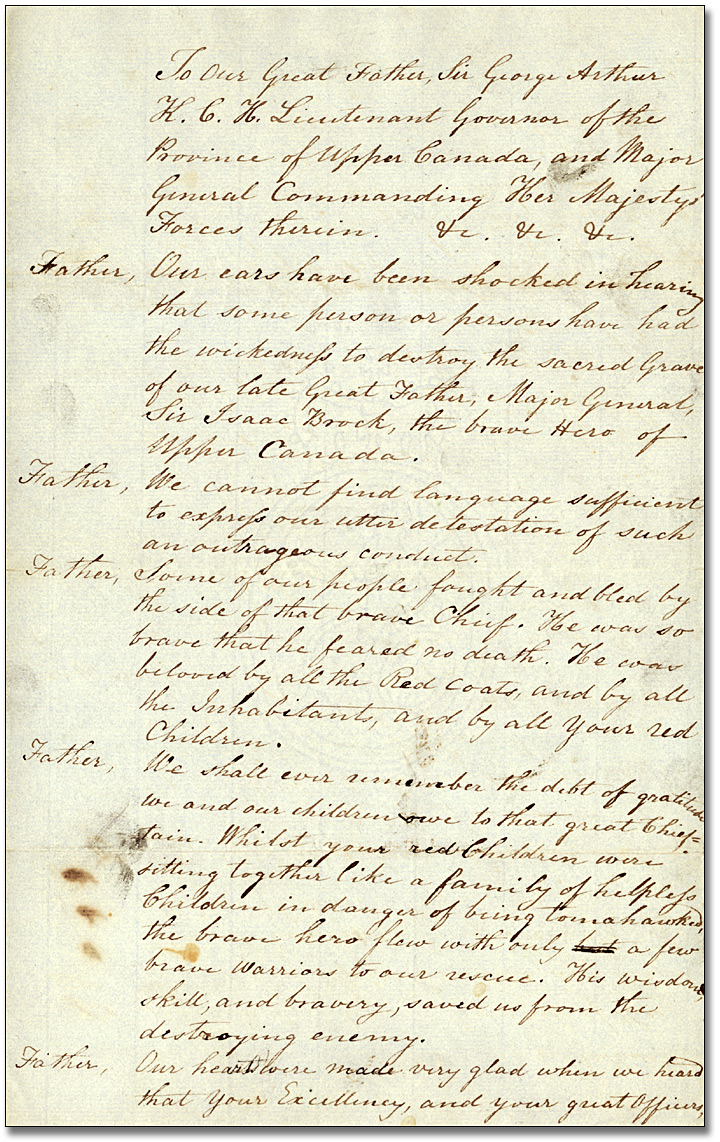 To Our Great Father, Sir George Arthur
K. C. H. Lieutenant Governor of the
Province of Upper Canada, and Major
General Commanding Her Majestys
Forces therein. &c. &c. &c.
Father, Our ears have been shocked in hearing
that some person or persons have had
the wickedneſs to destroy the sacred Grave
of our late Great Father, Major General,
Sir Isaac Brock, the brave Hero of
Upper Canada.
Father, We cannot find language sufficient
to expreſs our utter detestation of such
an outrageous conduct.
Father, Some of our people fought and bled by
the side of that brave Chief. He was so
brave that he feared no death. He was
beloved by all the Red Coats, and by all
the Inhabitants, and by all Your red
Children.
Father, We shall ever remember the debt of gratitude
we and our children owe to that great Chief=
tain. Whilst your red Children were
sitting together like a family of helpleſs
Children in danger of being tomahawked,
the brave hero flew with only but a few
brave Warriors to our rescue. His wisdom,
skill, and bravery, saved us from the
destroying enemy.
Father, Our hearts were made very glad when we heard
that Your Excellency, and your great Officers,